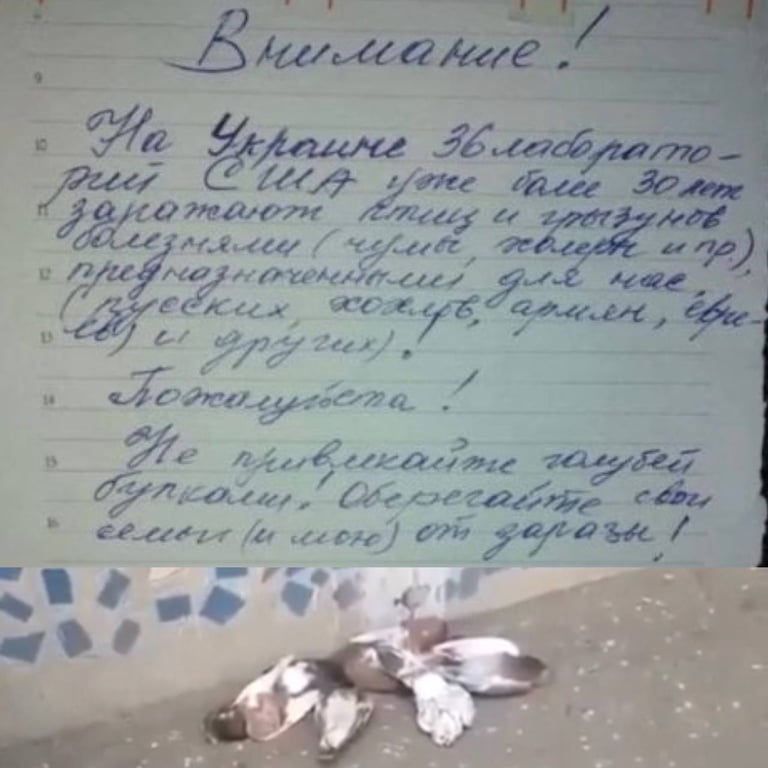 Внимание!
9
10 На Украине 36 лаборато-
рий США уже более 30 лет
11 заражают птиц и грызунов
болезнями (чумы, холеры и пр.),
12 предназначенными для нас,
(русских, хохлов, армян, евре-
13 ев) и других)!
14 Пожалуйста!
15 Не привлекайте голубей
булками! Оберегайте свои
16 семьи (и мою) от заразы!